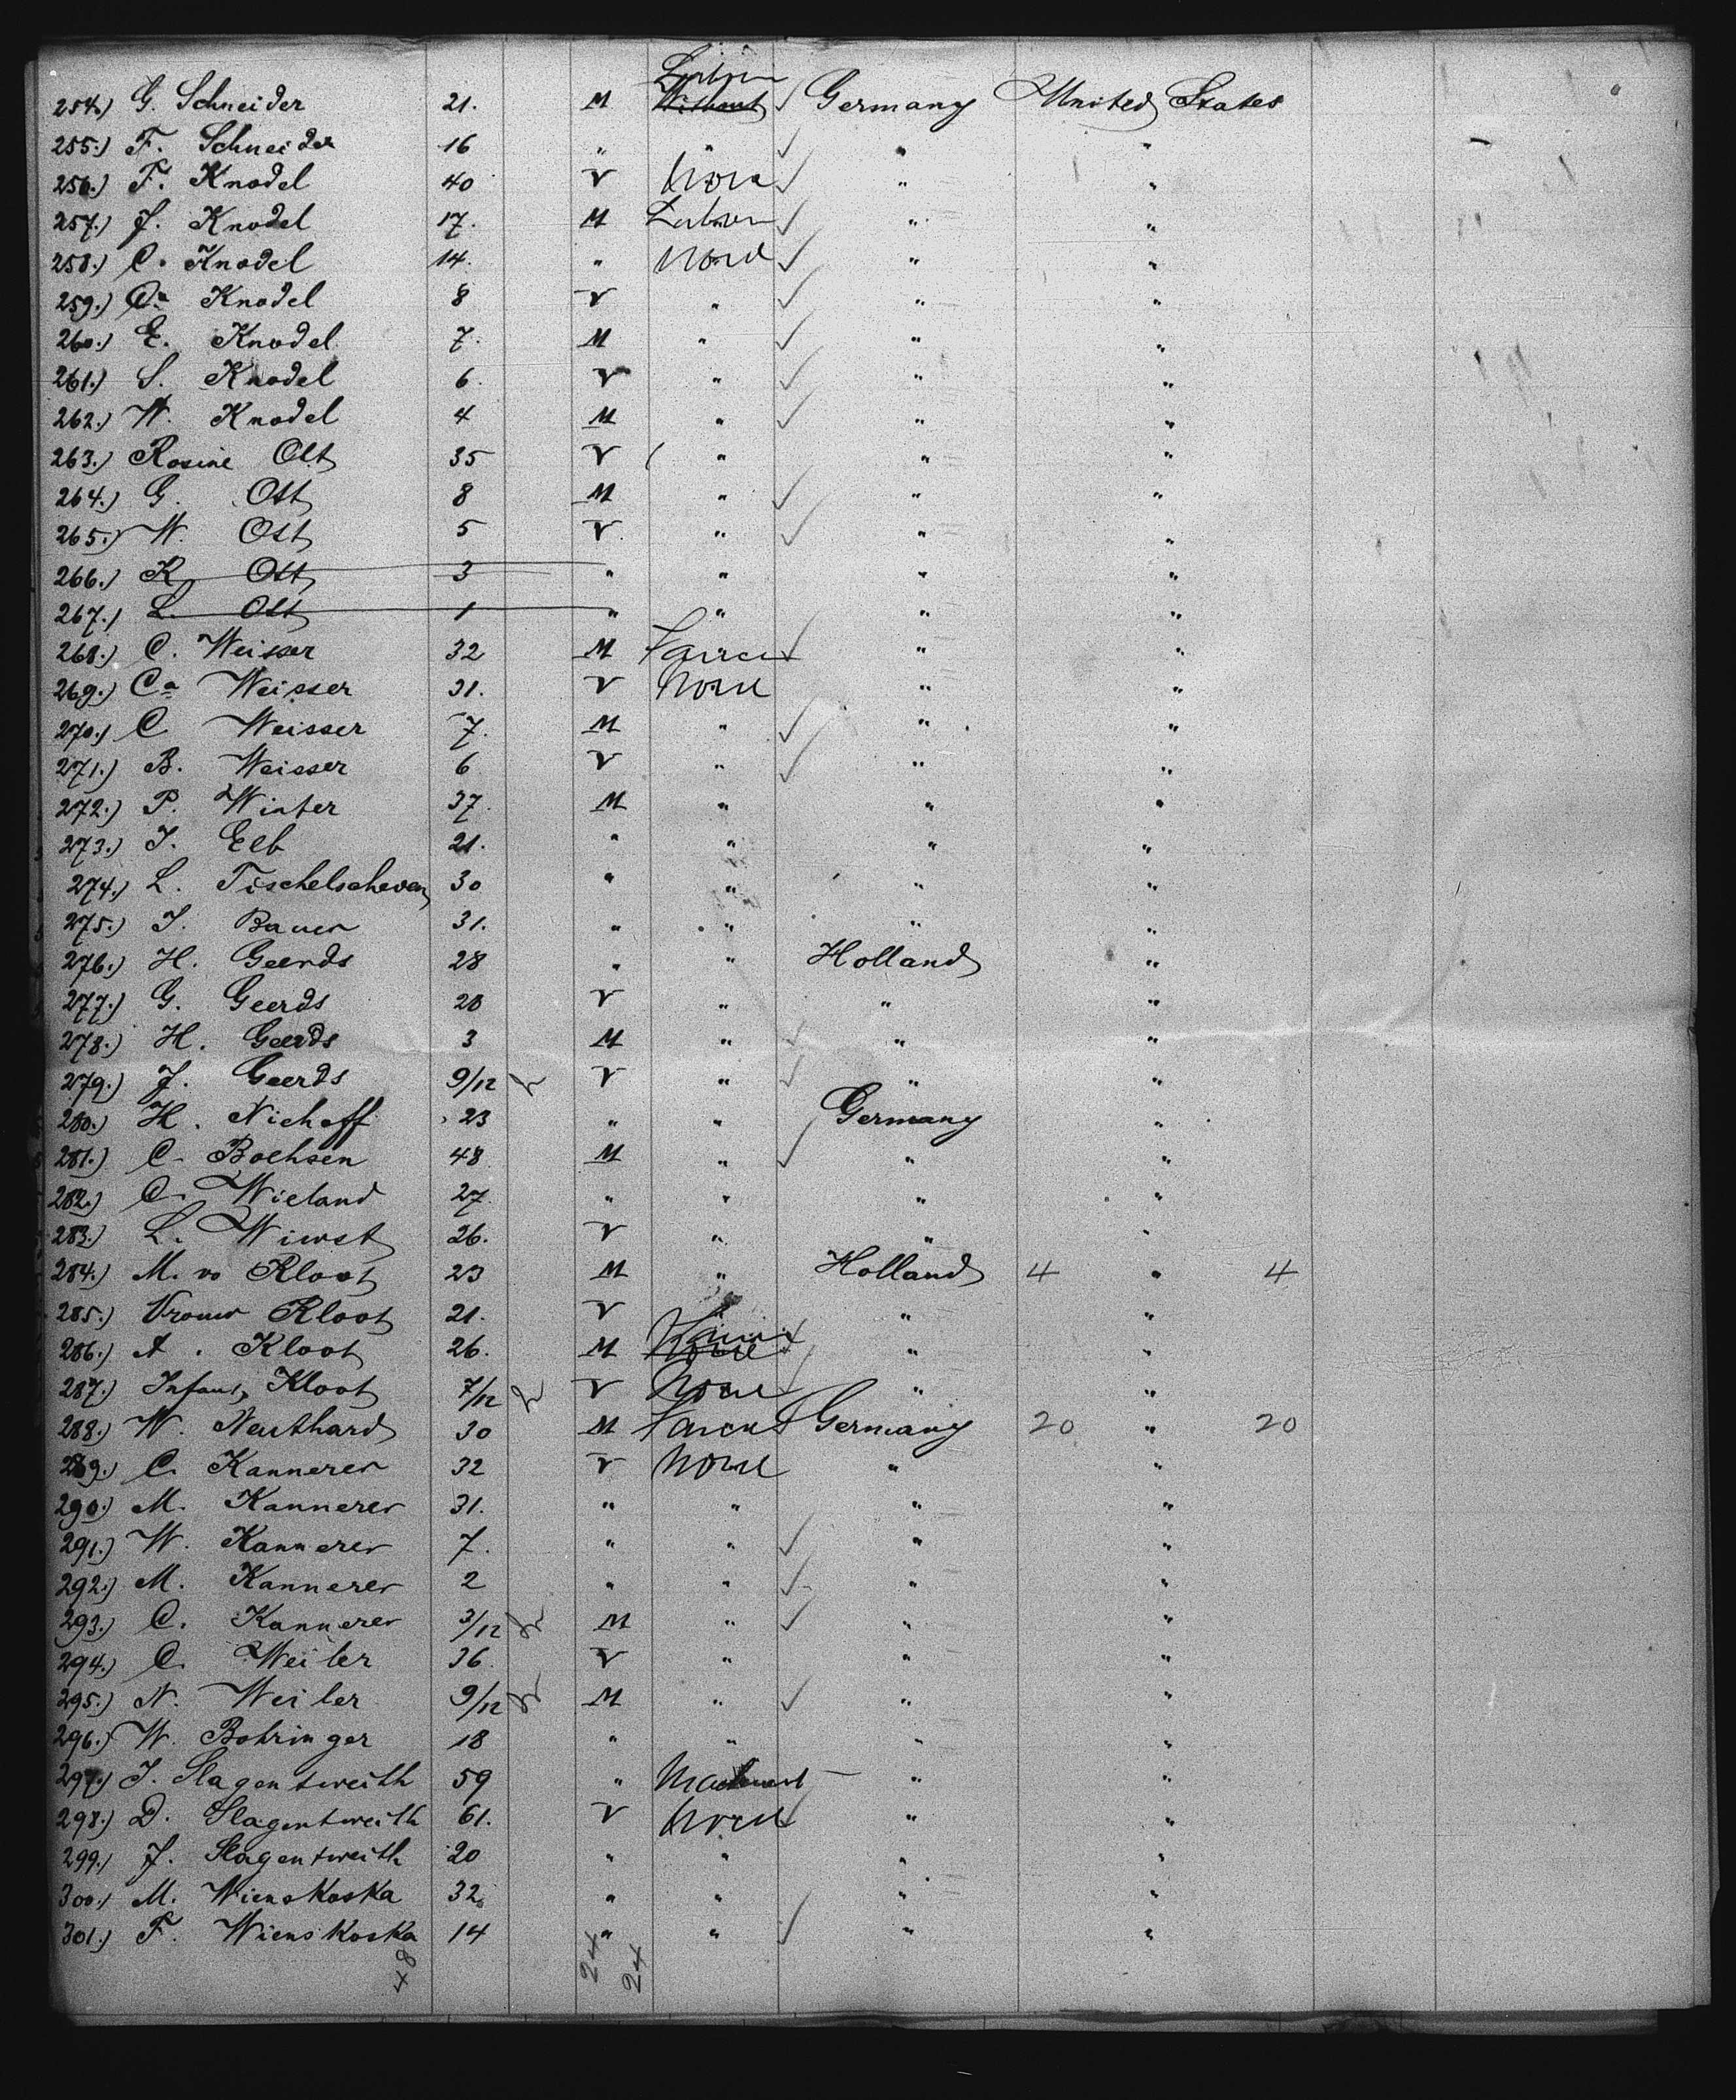 Labor
254.) G. Schneider 21. M Without ✓ Germany United States
255.) F. Schneider 16 " " ✓ " "
256.) F. Knodel 40 V None ✓ " "
257.) J. Knodel 17. M Labor ✓ " "
258.) C. Knodel 14. " None ✓ " "
259.) Ca Knodel 8 V " ✓ " "
260.) E. Knodel 7. M " ✓ " "
261.) S. Knodel 6. V " ✓ " "
262.) W. Knodel 4 M " ✓ " "
263.) Rosine Ott 35 V " " "
264.) G. Ott 8 M " ✓ " "
265.) W. Ott 5 V. " ✓ " "
266.) K Ott 3 " " " "
267.) L. Ott 1 " " " "
268.) C. Weisser 32 M Farmer ✓ " "
269.) Ca Weisser 31. V None " "
270.) C Weisser 7. M " ✓ " "
271.) B. Weisser 6 V " ✓ " "
272.) P. Winter 37. M " " "
273.) J. Elb 21. " " " "
274.) L. Tischelscheven 30 " " " "
275.) J. Bauer 31. " " " "
276.) H. Geerds 28 " " Holland "
277.) G. Geerds 28 V " " "
278.) H. Geerds 3 M " ✓ " "
279.) J. Geerds 9/12 V " ✓ " "
280.) H. Niehoff 23 " " Germany "
281.) C. Boehsen 48 M " ✓ " "
282.) C. Wieland 27. " " " "
283.) L. Wierst 26. V " " "
284.) M. vo Kloot 23 M " Holland 4 " 4
285.) Vrouw Kloot 21. V " "
286.) A. Kloot 26. M None " "
287.) Infant, Kloot 7/12 V None ✓ " "
288.) W. Neuthard 30 M Farmer Germany 20 " 20
289.) C. Kannerer 32 V None " "
290.) M. Kannerer 31. " " " "
291.) W. Kannerer 7. " " ✓ " "
292.) M. Kannerer 2 " " ✓ " "
293.) C. Kannerer 3/12 M " ✓ " "
294.) C. Weiler 36. V " " "
295.) N. Weiler 9/12 M " ✓ " "
296.) W. Bohringer 18 " " " "
297.) J. Slagentweith 59 " " "
298.) D. Slagentweith 61. V None ✓ " "
299.) J. Slagentweith 20 " " " "
300.) M. Wienskoska 32. " " " "
301.) F. Wienskoska 14 " " ✓ " "
48 24 24